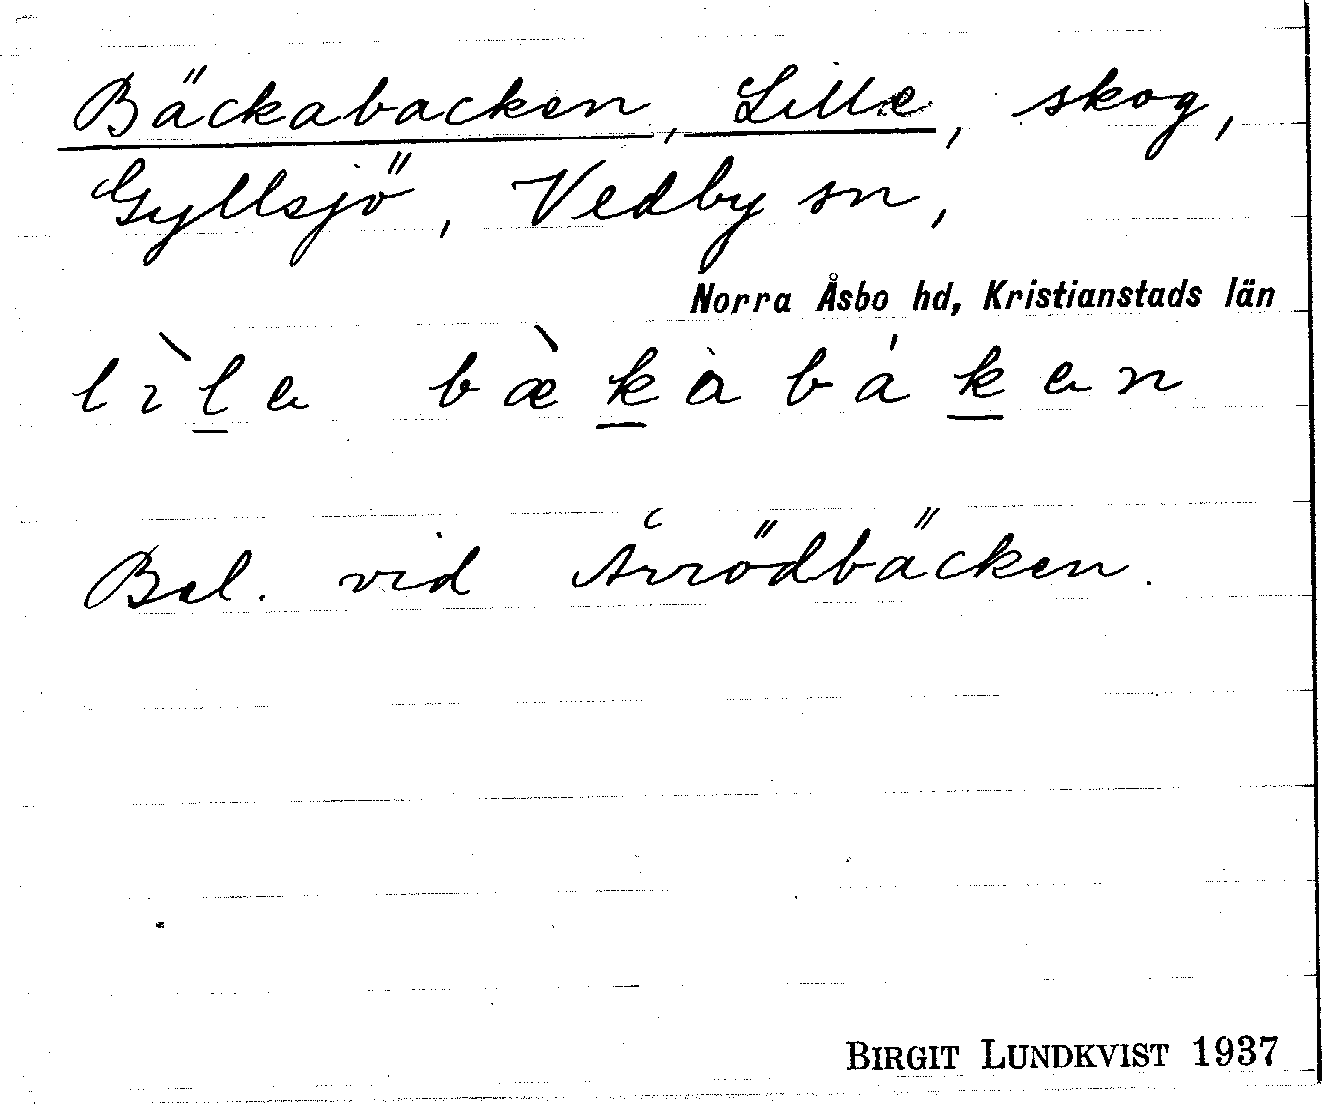 Bäckabacken, Lille, skog,
Gyllsjö, Vedby sn,
Norra Åsbo hd, Kristianstads län
lìlə bæ̀kàbákən
Bel. vid Årrödbäcken.
BIRGIT LUNDKVIST 1937